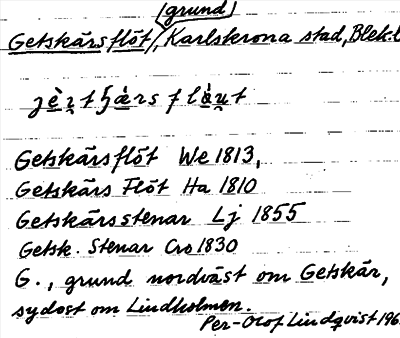 (grund)
Getskärsflöt, Karlskrona stad, Blek.l
Getskärsflöt We 1813,
Getskärs Flöt Ha 1810
Getskärsstenar Lj 1855
Getsk. Stenar Cro 1830
G., grund nordväst om Getskär,
sydost om Lindholmen.
Per-Olof Lindqvist 196